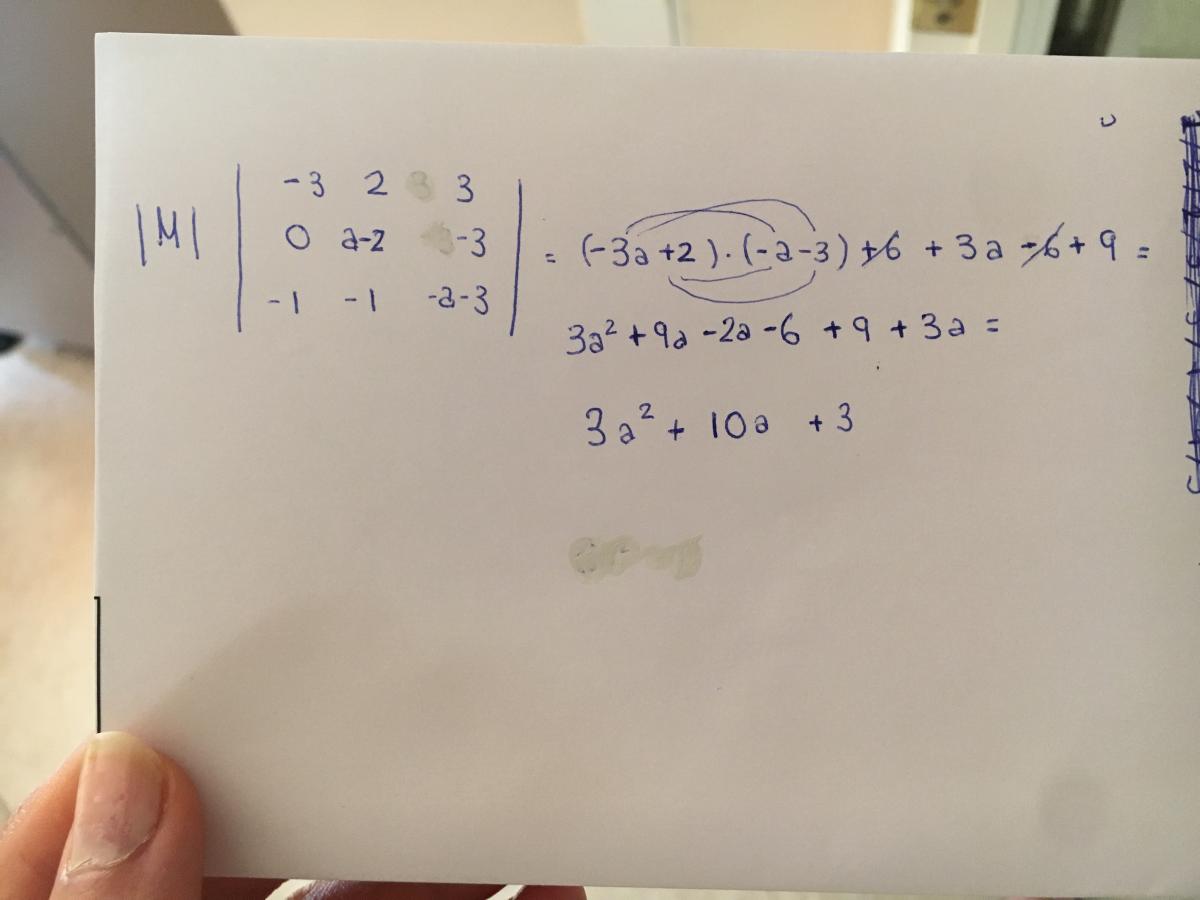 |M| | -3 2 3 |
| 0 a-2 -3 | = (-3a+2).(-a-3) +6 + 3a -6 + 9 =
| -1 -1 -a-3 |
3a² + 9a - 2a - 6 + 9 + 3a =
3a² + 10a + 3